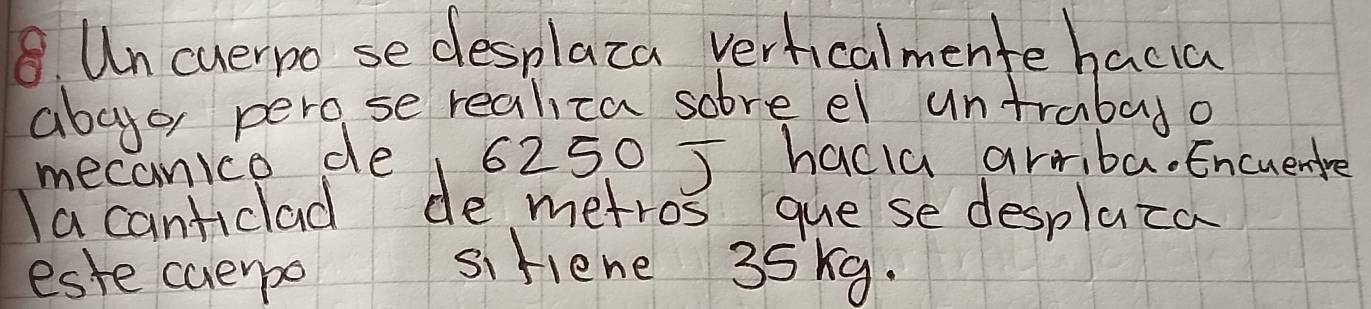 8. Un cuerpo se desplaza verticalmente hacia
abajo, pero se realiza sobre el un trabajo
mecanico de 6250 J hacia arriba. Encuentre
la cantidad de metros que se desplaza
este cuerpo si tiene 35 kg.